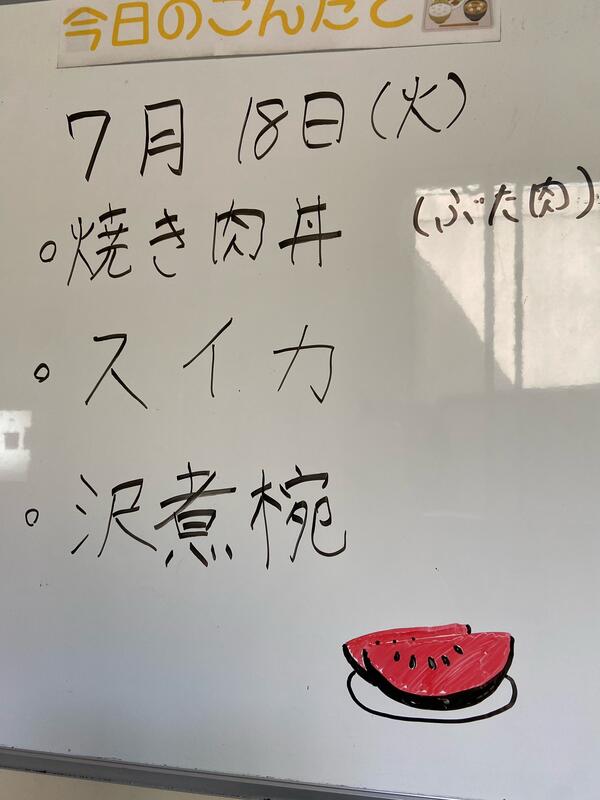 今日のこんだて
7月 18日(火)
。焼き肉丼 (ぶた肉)
。スイカ
。沢煮椀